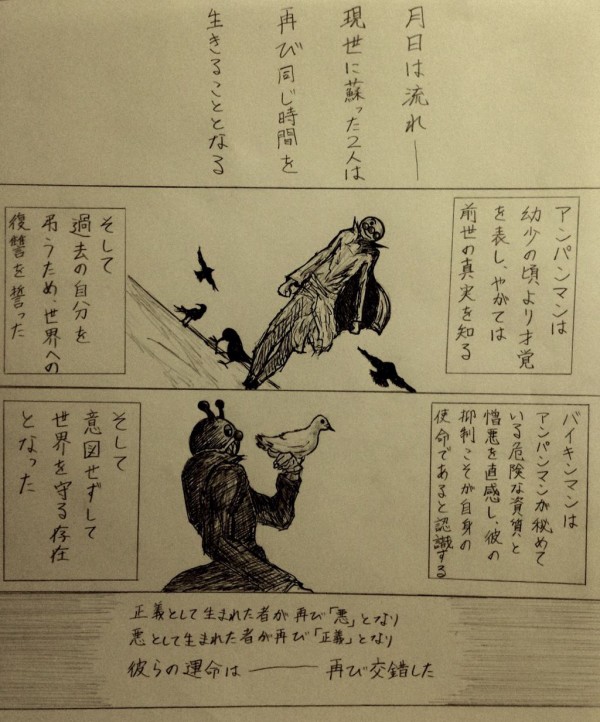 月日は流れ――
現世に蘇った2人は
再び同じ時間を
生きることとなる
アンパンマンは
幼少の頃より才覚
を表し、やがては
前世の真実を知る
そして
過去の自分を
弔うため、世界への
復讐を誓った
バイキンマンは
アンパンマンが秘めて
いる危険な資質と
憎悪を直感し、彼の
抑制こそが自身の
使命であると認識する
そして
意図せずして
世界を守る存在
となった
正義として生まれた者が再び「悪」となり
悪として生まれた者が再び「正義」となり
彼らの運命は―――再び交錯した